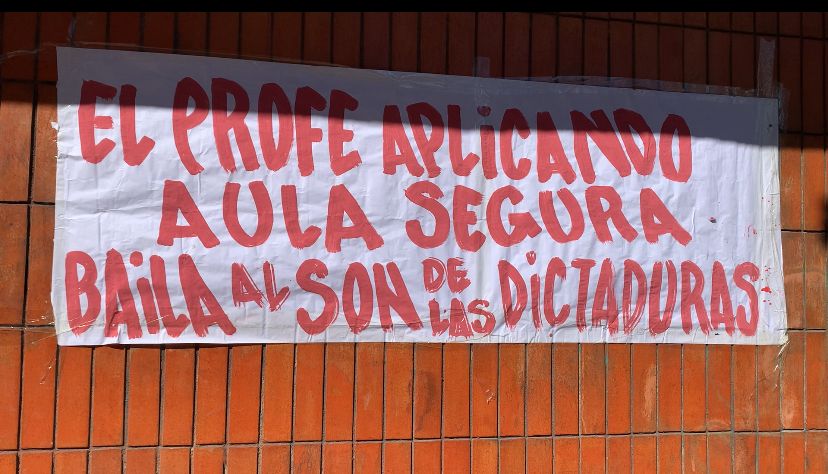 EL PROFE APLICANDO
AULA SEGURA
BAILA AL SON DE LAS DICTADURAS